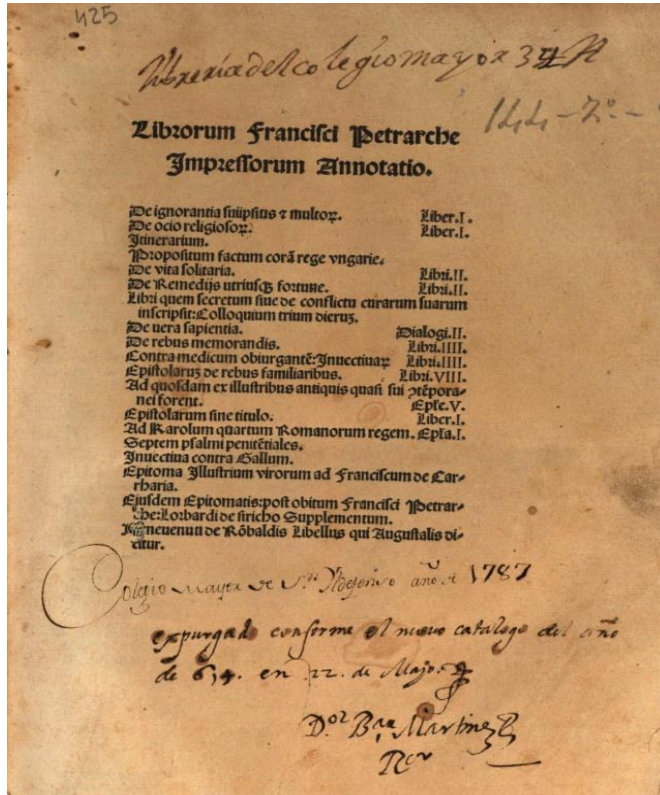 425
libreria del colegio mayor 34
144-2º-
Librorum Francisci Petrarche
Impressorum Annotatio.
De ignorantia suiipsius ⁊ multoꝝ. Liber.I.
De ocio religiosoꝝ. Liber.I.
Itinerarium.
Propositum factum corā rege vngarie.
De vita solitaria. Libri.II.
De Remedijs utriusqꝫ fortune. Libri.II.
Libri quem secretum siue de conflictu curarum suarum
inscripsit: Colloquium trium dieruꝫ.
De uera sapientia. Dialogi.II.
De rebus memorandis. Libri.IIII.
Contra medicum obiurgantē: Inuectiuaꝝ Libri.IIII.
Epistolaruꝫ de rebus familiaribus. Libri.VIII.
Ad quosdam ex illustribus antiquis quasi sui ↄtēpora-
nei forent. Epľe.V.
Epistolarum sine titulo. Liber.I.
Ad Karolum quartum Romanorum regem. Epľa.I.
Septem psalmi penitētiales.
Inuectiua contra Gallum.
Epitoma Illustrium virorum ad Franciscum de Car-
rharia.
Eiusdem Epitomatis: post obitum Francisci Petrar-
che: Lorbardi de siricho Supplementum.
Beneuenuti de Rōbaldis Libellus qui Augustalis di-
citur.
Colegio mayor de Sn. Ildefonso año de 1787
expurgado conforme el nuevo catalogo del año
de 6 en 22. de Majo.
Dor Martinez
Ror